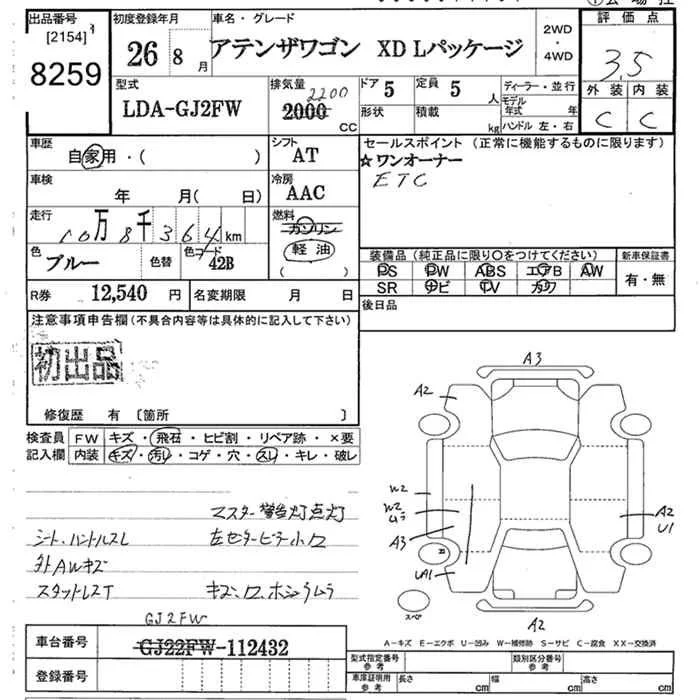 出品番号 [2154] 8259
初度登録年月 26 8月
車名・グレード アテンザワゴン XD Lパッケージ
2WD・4WD
評価点 3.5
外装 内装
C C
型式 LDA-GJ2FW
排気量 2200 2000 CC
ドア 5 形状
定員 5 人 積載 kg
ディーラー・並行
モデル年式 年
ハンドル 左・右
車歴 自家用・( )
シフト AT
セールスポイント (正常に機能するものに限ります)
☆ワンオーナー
ETC
車検 年 月( 日)
冷房 AAC
走行 10万8千364km
燃料 ガソリン 軽油 ( )
色 ブルー 色替 色コード 42B
装備品 (純正品に限り〇をつけてください)
PS PW ABS エアB AW
SR ナビ TV カワ
新車保証書 有・無
R券 12,540 円 名変期限 月 日
後日品
注意事項申告欄(不具合内容等は具体的に記入して下さい)
初出品
修復歴 有 〔箇所 〕
検査員記入欄
FW キズ・飛石・ヒビ割・リペア跡・×要
内装 キズ・汚れ・コゲ・穴・スレ・キレ・破レ
マスター警告灯点灯
シート、ハンドルスレ 左センターピラー小ワ
外AWキズ
スタットレスT キズ、ワ、ホシ、ムラ
A3
A2
W2
W2
U2
A3
UA1
A2
U1
A2
スペア
A-キズ E-エクボ U-凹み W-補修跡 S-サビ C-腐食 XX-交換済
GJ2FW
車台番号 GJ22FW-112432
登録番号
型式指定番号 参考 類別区分番号 参考
車庫証明用 参考 長さ cm 幅 cm 高さ cm